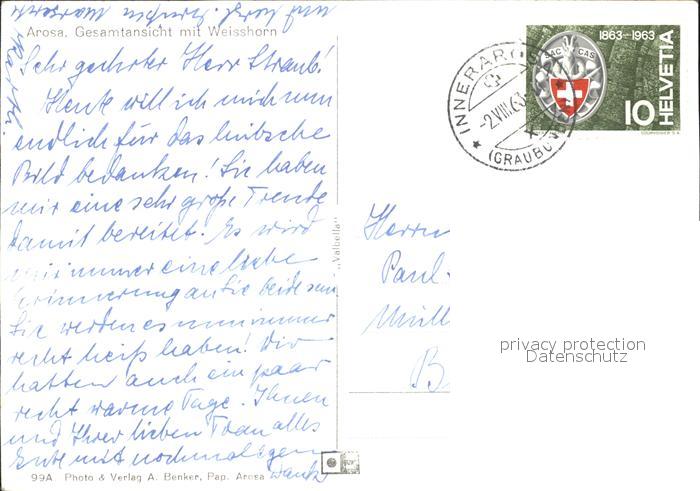 Arosa, Gesamtansicht mit Weisshorn
Sehr geehrter Herr Straub!
Heute will ich mich nun
endlich für das hübsche
Bild bedanken! Sie haben
mir eine sehr große Freude
damit bereitet. Es wird
mir immer eine liebe
Erinnerung an Sie beide sein
Sie werden es nun immer
recht heiß haben! Wir
hatten auch ein paar
recht warme Tage. Ihnen
und Ihrer lieben Frau alles
Gute mit nochmaligem
Dank
99A Photo & Verlag A. Benker, Pap. Arosa
„Valbella"
1863-1963
SAC CAS
HELVETIA
10
COURVOISIER S.A.
INNERAROSA
-2.VIII.63
(GRAUBÜ
Herrn
Paul
B
privacy protection
Datenschutz